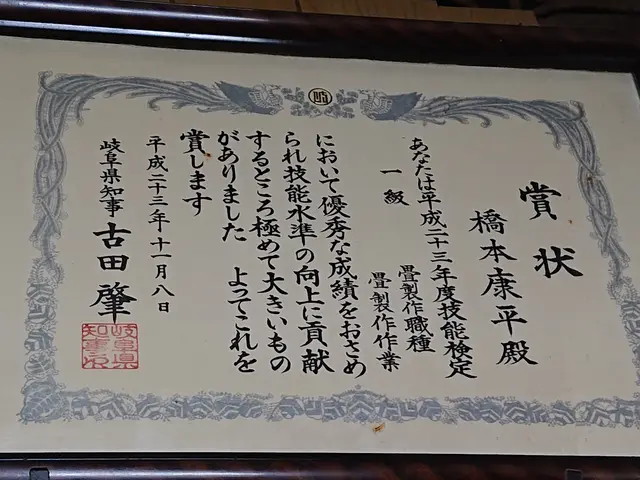 賞状
橋本康平殿
あなたは平成二十三年度技能検定
一級
畳製作職種
畳製作作業
において優秀な成績をおさめ
られ技能水準の向上に貢献
するところ極めて大きいもの
がありました よってこれを
賞します
平成二十三年十一月八日
岐阜県知事 古田肇
岐阜県
知事之印